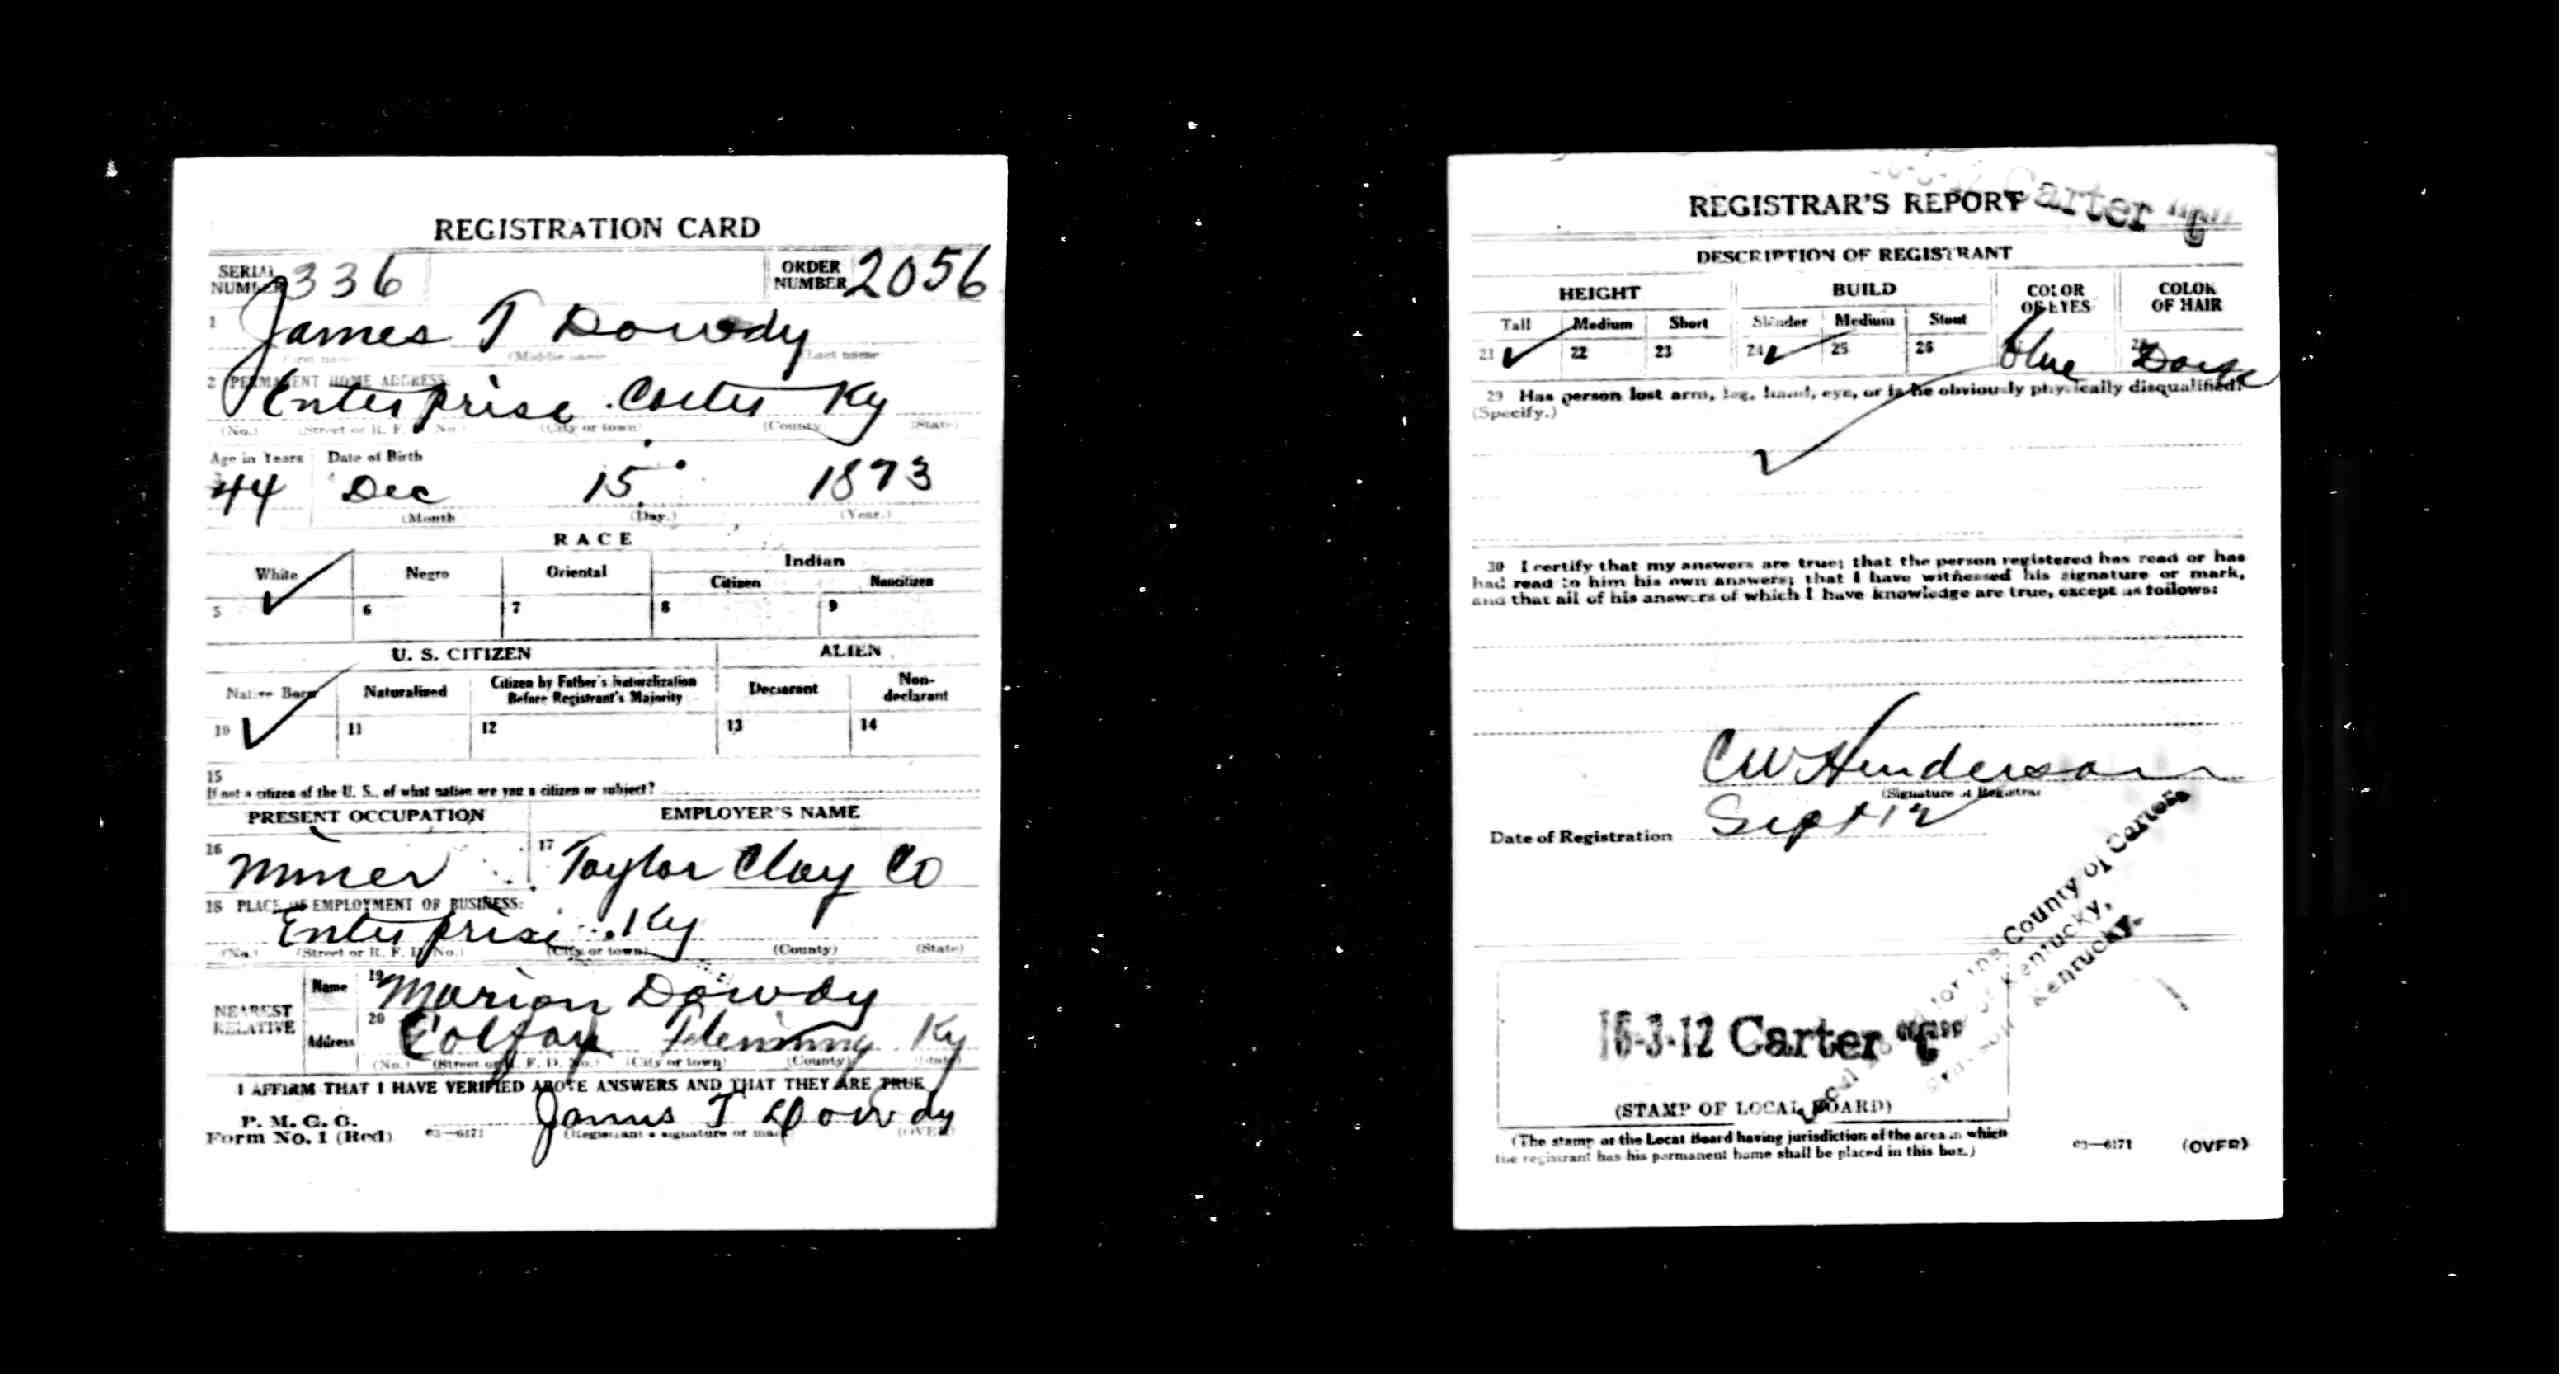 REGISTRATION CARD
SERIAL NUMBER 336 ORDER NUMBER 2056
1 James T Dowdy
(First name) (Middle name) (Last name)
2 PERMANENT HOME ADDRESS:
Enterprise Carter Ky
(No.) (Street or R. F. D. No.) (City or town) (County) (State)
Age in Years Date of Birth
44 Dec 15 1873
(Month) (Day.) (Year.)
RACE
White Negro Oriental Indian
Citizen Noncitizen
5 ✓ 6 7 8 9
U. S. CITIZEN ALIEN
Native Born Naturalized Citizen by Father's Naturalization Before Registrant's Majority Declarant Non-declarant
10 ✓ 11 12 13 14
15
If not a citizen of the U. S., of what nation are you a citizen or subject?
PRESENT OCCUPATION EMPLOYER'S NAME
16 Miner 17 Taylor Clay Co
18 PLACE OF EMPLOYMENT OR BUSINESS:
Enterprise Ky
(No.) (Street or R. F. D. No.) (City or town) (County) (State)
NEAREST RELATIVE
Name 19 Marion Dowdy
Address 20 Colfax Fleming Ky
(No.) (Street or R. F. D. No.) (City or town) (County) (State)
I AFFIRM THAT I HAVE VERIFIED ABOVE ANSWERS AND THAT THEY ARE TRUE
P. M. G. O.
Form No. 1 (Red) 03—6171 James T Dowdy
(Registrant's signature or mark) (OVER)
REGISTRAR'S REPORT
Carter "C"
DESCRIPTION OF REGISTRANT
HEIGHT BUILD COLOR OF EYES COLOR OF HAIR
Tall Medium Short Slender Medium Stout
21 ✓ 22 23 24 ✓ 25 26 blue
29 Has person lost arm, leg, hand, eye, or is he obviously physically disqualified?
(Specify.)
✓
30 I certify that my answers are true; that the person registered has read or has
had read to him his own answers; that I have witnessed his signature or mark,
and that all of his answers of which I have knowledge are true, except as follows:
C W Henderson
(Signature of Registrar)
Date of Registration Sept 12
County of Carter,
Kentucky,
Kentucky.
16-3-12 Carter "C"
(STAMP OF LOCAL BOARD)
(The stamp of the Local Board having jurisdiction of the area in which
the registrant has his permanent home shall be placed in this box.)
03—6171 (OVER)